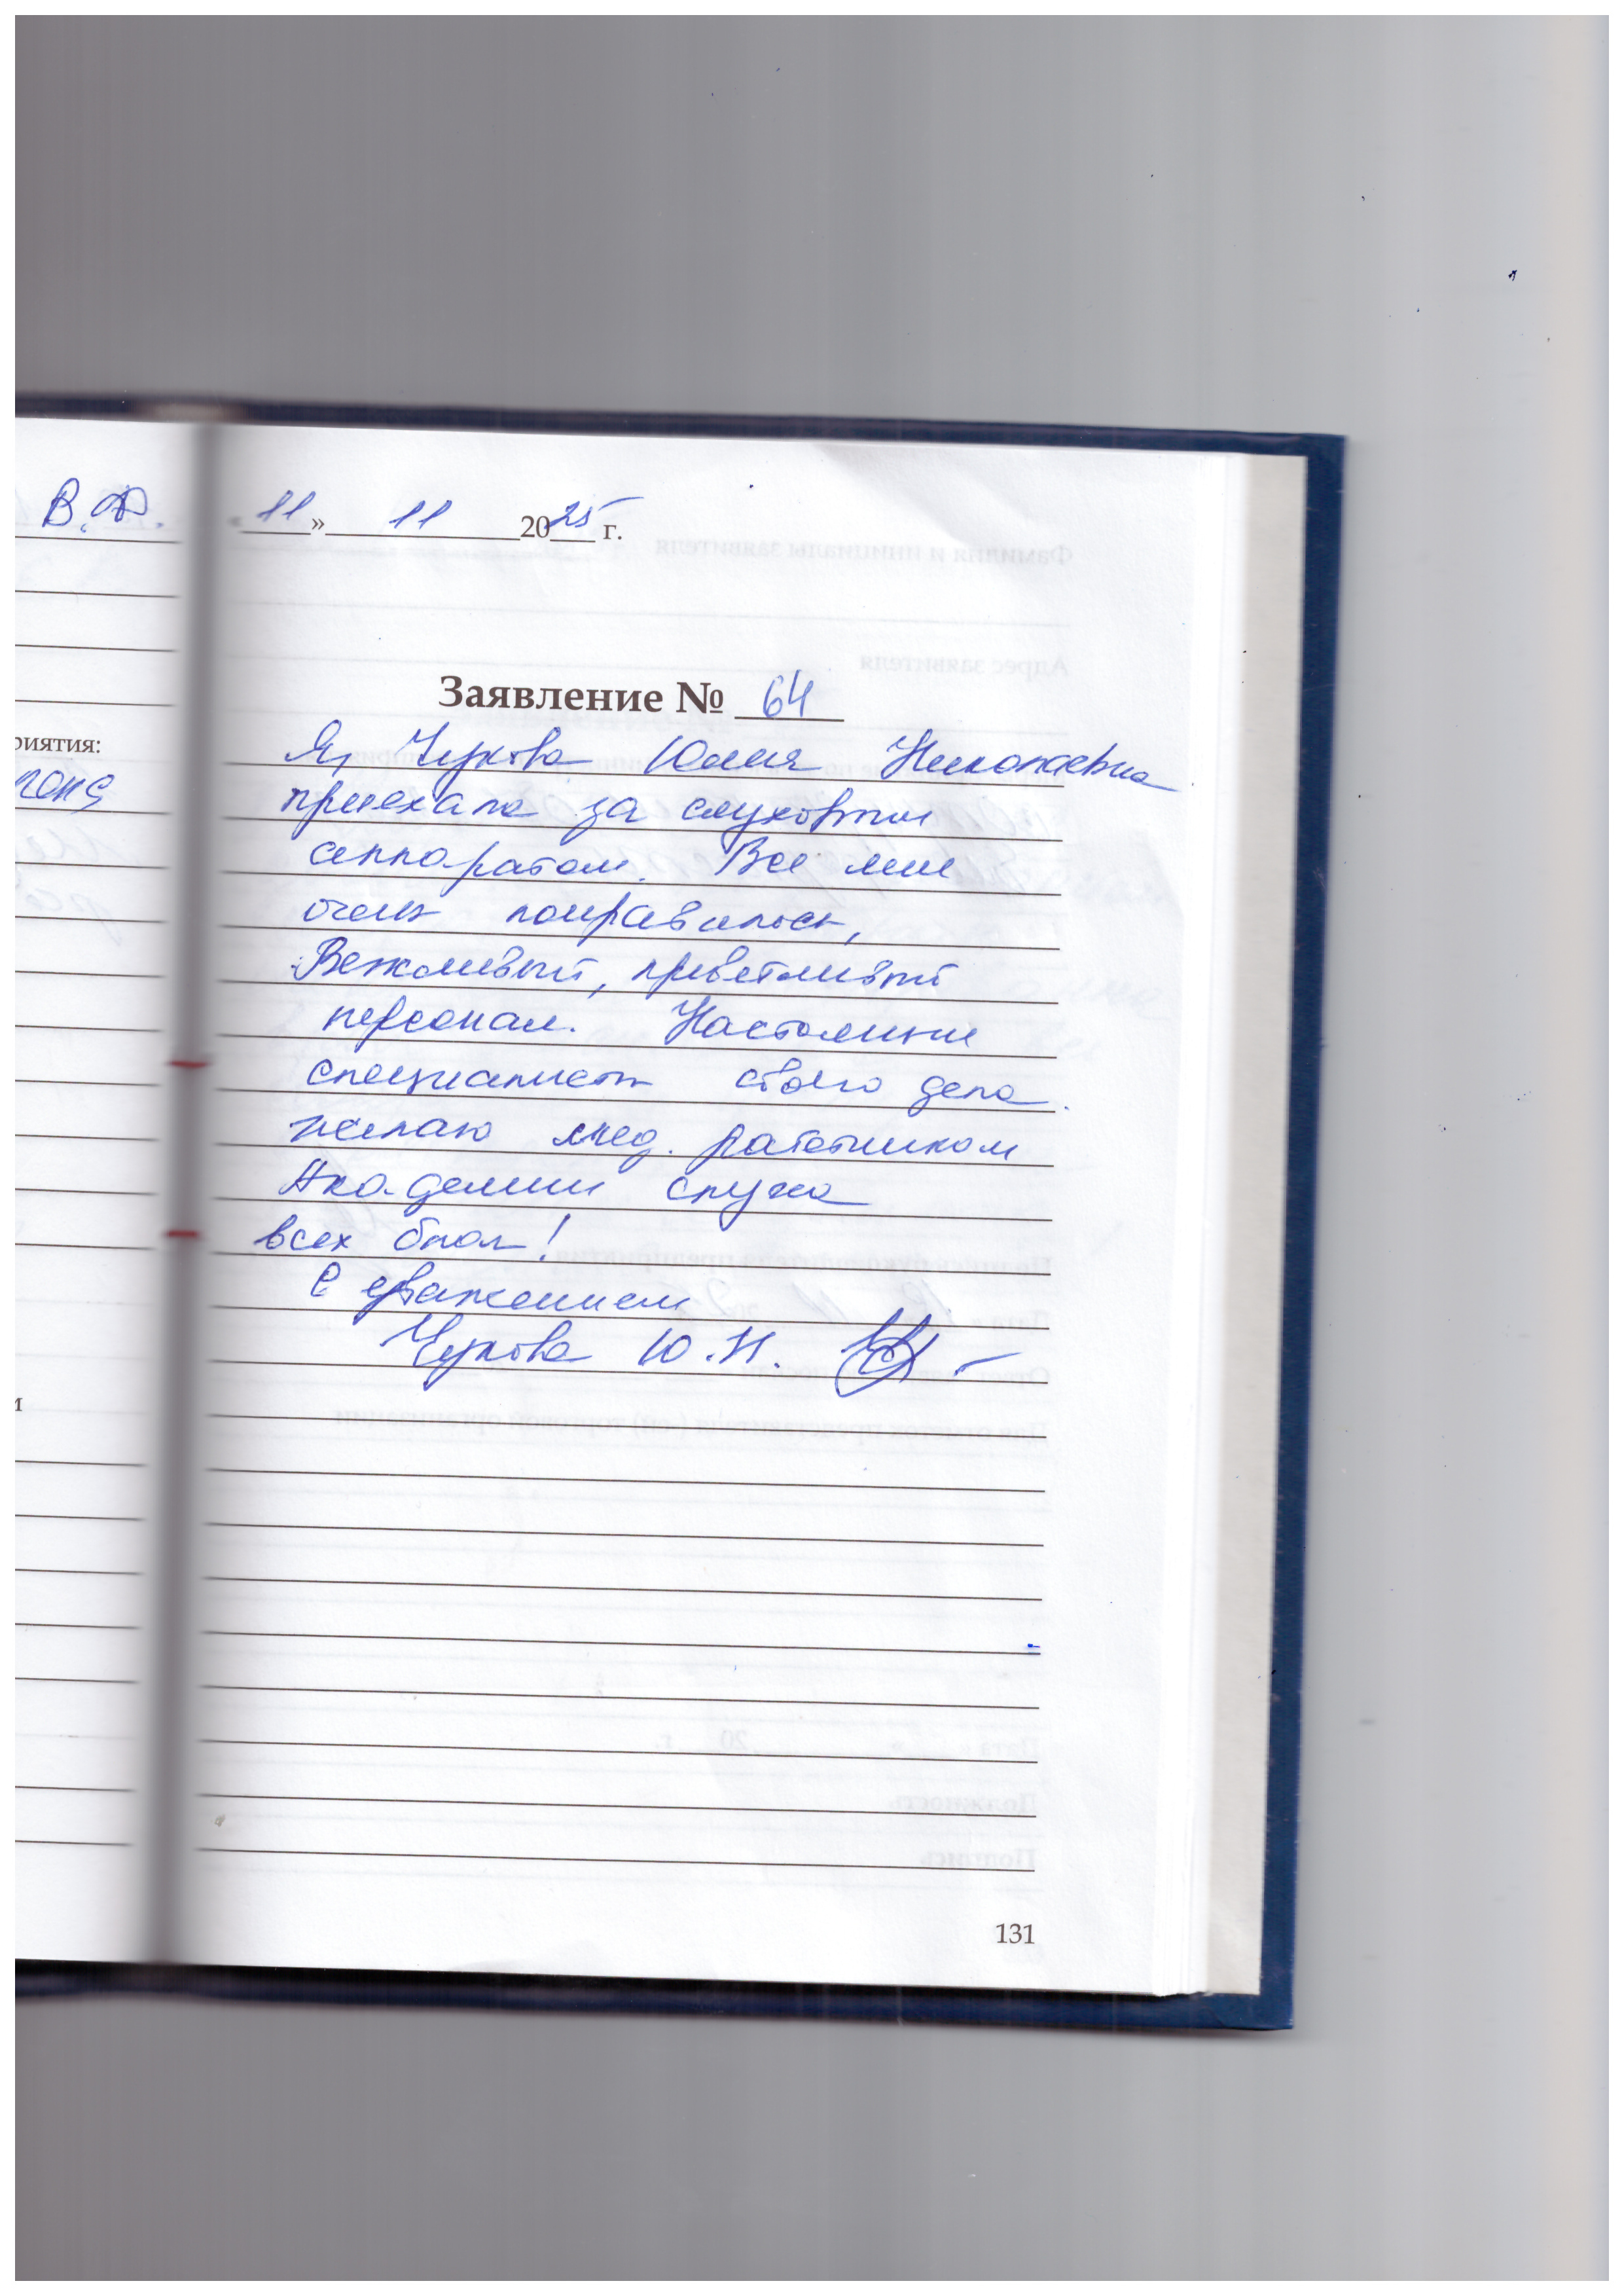 В.Ф.
«11» 11 2025 г.
Заявление № 64
риятия:
Я, Чукова Юлия Николаевна
приехала за слуховым
аппаратом. Все мне
очень понравилось,
Вежливый, приветливый
персонал. Настоящие
специалисты своего дела.
желаю мед. работникам
Академии слуха
всех благ!
С уважением
Чукова Ю.Н.
131